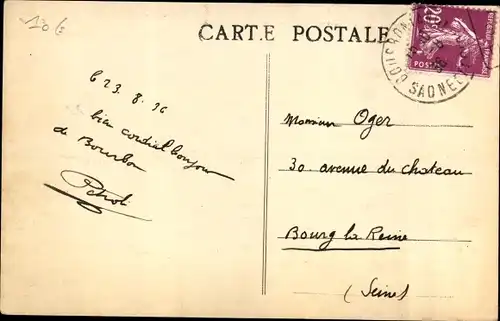 CARTE POSTALE
20c
POSTES
BOURBON
SAONE
23.8.36
bien cordial bonjour
de Bourbon
Monsieur Oger
30. avenue du chateau
Bourg la Reine
(Seine)